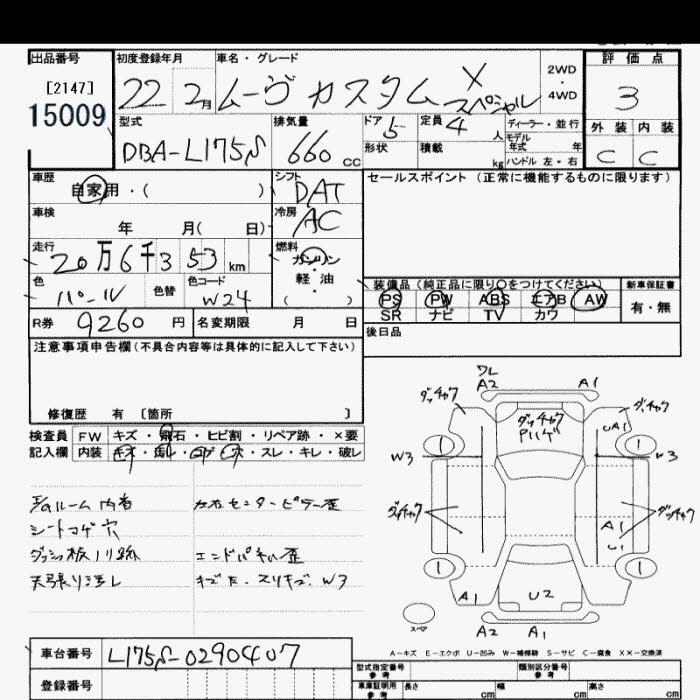 出品番号 初度登録年月 車名・グレード 評価点
[2147]
15009
22 2月 ムーヴ カスタム X スペシャル 2WD・4WD 3
型式 排気量 ドア 5 定員 4人 ディーラー・並行 外装 内装
DBA-L175S 660cc 形状 積載 kg モデル年式 年 ハンドル 左・右 C C
車歴 自家用・( ) シフト DAT セールスポイント(正常に機能するものに限ります)
車検 年 月( 日) 冷房 AC
走行 20万6千353km 燃料 ガソリン・軽油( )
色 パール 色替 色コード W24
装備品(純正品に限り○をつけてください) 新車保証書
PS PW ABS エアB AW 有・無
SR ナビ TV カワ
R券 9260円 名変期限 月 日 後日品
注意事項申告欄(不具合内容等は具体的に記入して下さい)
修復歴 有 [箇所 ]
検査員 FW キズ・飛石・ヒビ割・リペア跡・×要
記入欄 内装 キズ・汚レ・コゲ・穴・スレ・キレ・破レ
ルーム内 左右センターピラー歪
シートコゲ穴
ダッシュ板ノリ跡 エンドパネル歪
天張り汚レ キズ・スリキズ・W3
ワレ
A2 A1
ダッチャク ダッチャク
ダッチャク
Pハゲ
UA1
1 1
W3 W3
ダッチャク ダッチャク
A1
U1
1 1
A1 U2
スペア
A2 A1
A-キズ E-エクボ U-凹み W-補修跡 S-サビ C-腐食 XX-交換済
車台番号 L175S-0290407
登録番号
型式指定番号 参考 類別区分番号 参考
車庫証明用 参考 長さ cm 幅 cm 高さ cm